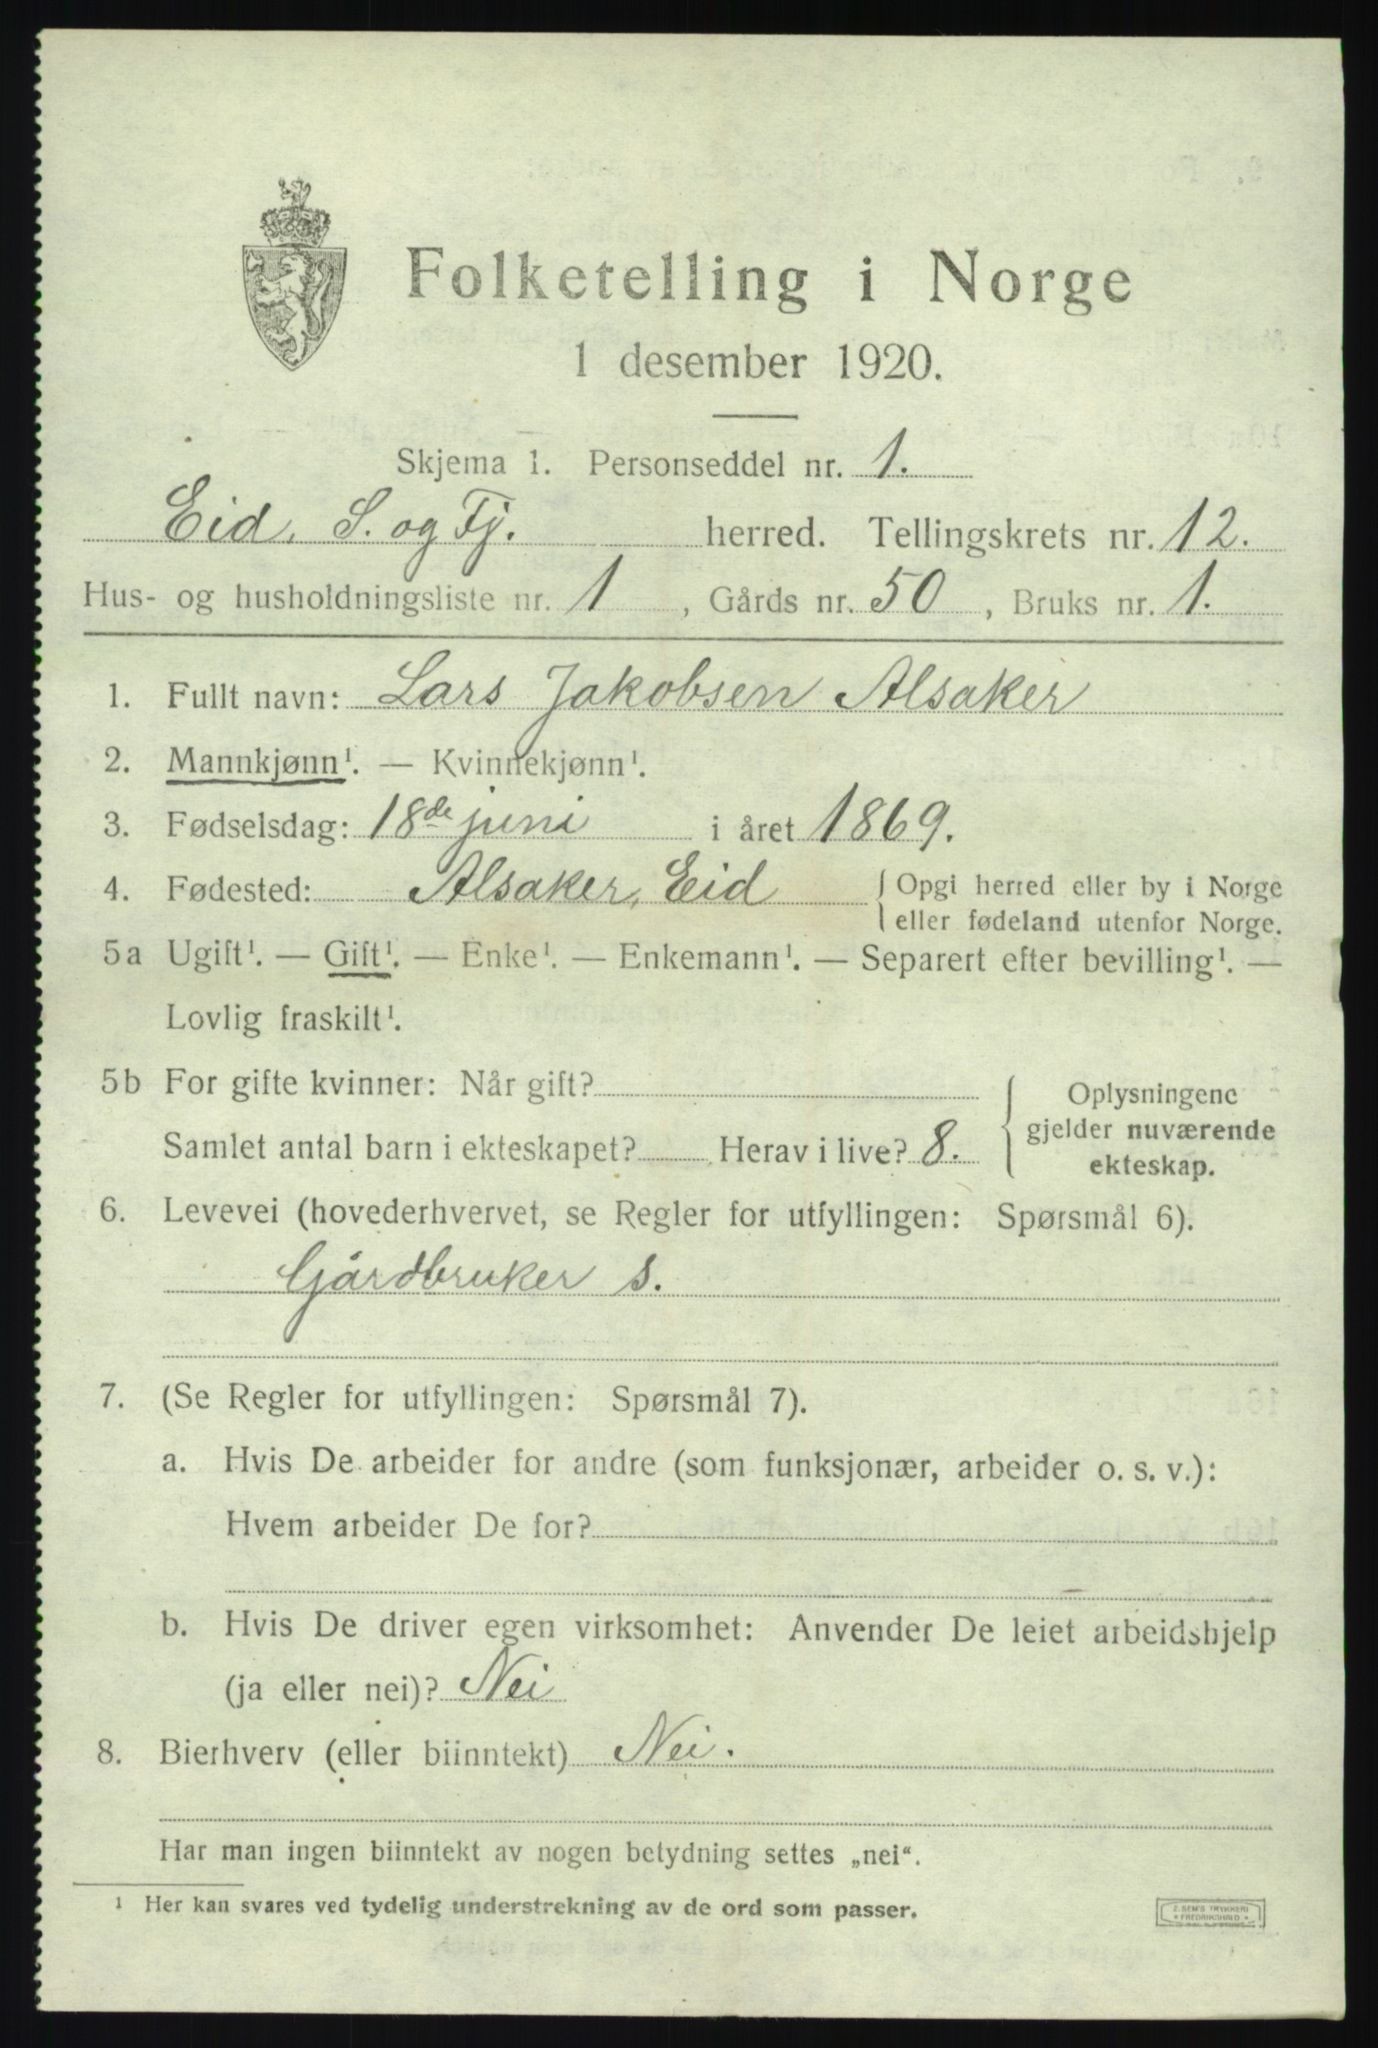 Folketelling i Norge
1 desember 1920.
Skjema 1. Personseddel nr. 1.
Eid, S. og Fj. herred. Tellingskrets nr. 12.
Hus- og husholdningsliste nr. 1, Gårds nr. 50, Bruks nr. 1.
1. Fullt navn: Lars Jakobsen Alsaker
2. Mannkjønn¹. — Kvinnekjønn¹.
3. Fødselsdag: 18de juni i året 1869.
4. Fødested: Alsaker, Eid { Opgi herred eller by i Norge
eller fødeland utenfor Norge.
5a Ugift¹. — Gift¹. — Enke¹. — Enkemann¹. — Separert efter bevilling¹. —
Lovlig fraskilt¹.
5b For gifte kvinner: Når gift?
Samlet antal barn i ekteskapet? Herav i live? 8.
Oplysningene
gjelder nuværende
ekteskap.
6. Levevei (hovederhvervet, se Regler for utfyllingen: Spørsmål 6).
Gårdbruker s.
7. (Se Regler for utfyllingen: Spørsmål 7).
a. Hvis De arbeider for andre (som funksjonær, arbeider o. s. v.):
Hvem arbeider De for?
b. Hvis De driver egen virksomhet: Anvender De leiet arbeidshjelp
(ja eller nei)? Nei
8. Bierhverv (eller biinntekt) Nei.
Har man ingen biinntekt av nogen betydning settes „nei“.
¹ Her kan svares ved tydelig understrekning av de ord som passer.
E. SEM'S TRYKKERI
* FREDRIKSHALD *